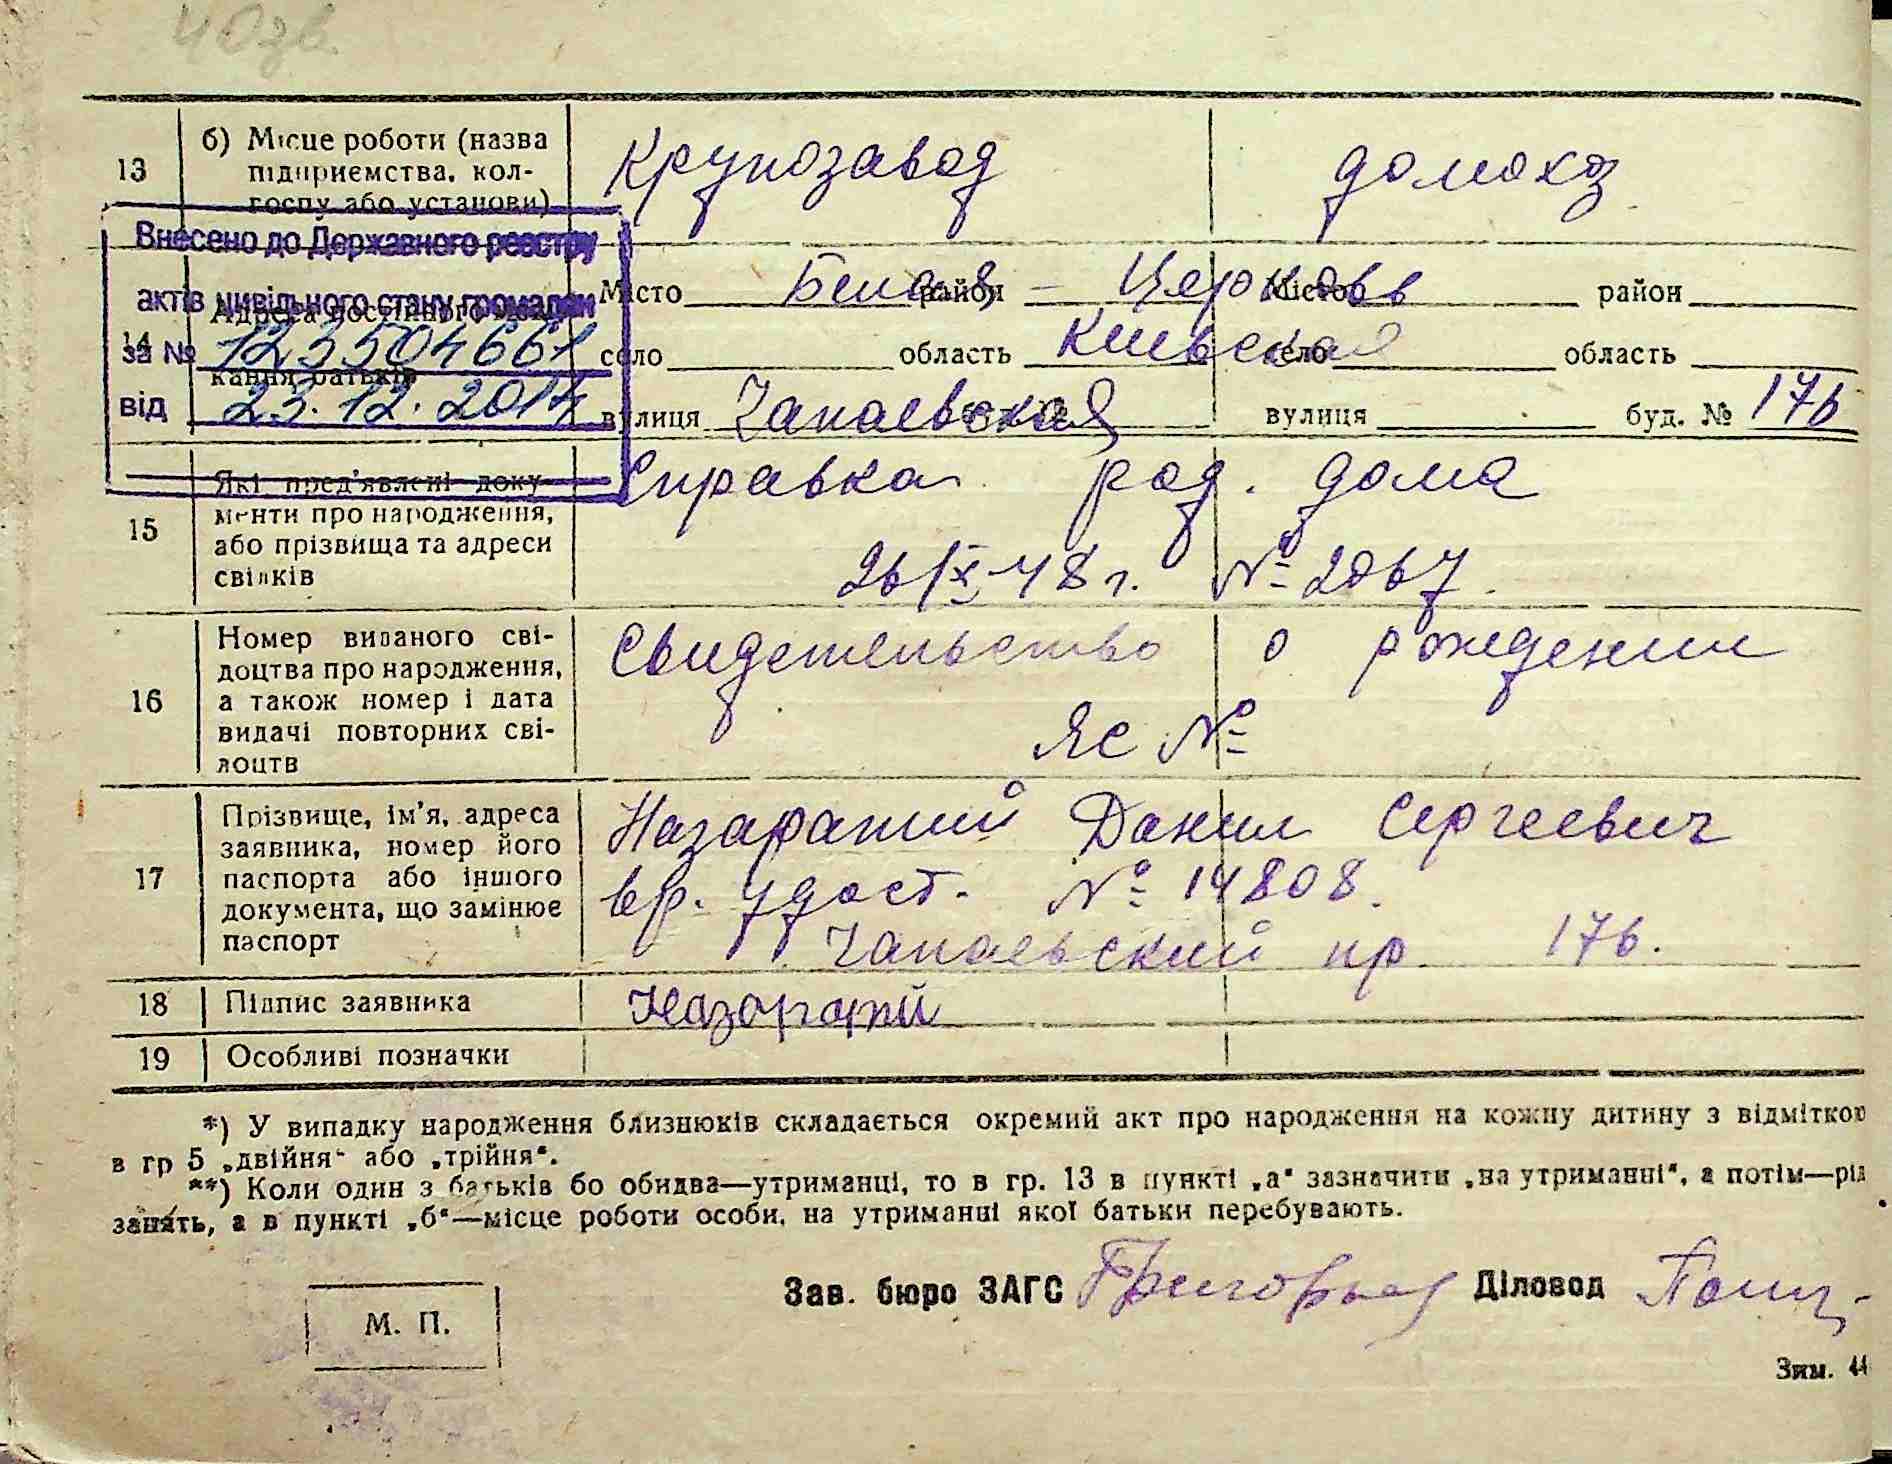 40зв
13 б) Місце роботи (назва підприємства, колгоспу або установи) Крупозавод домохоз
Внесено до Державного реєстру
актів цивільного стану громадян
за № 123504661
від 23.12.2014
14 Адреса постійного
кання батьків
Місто Белая район - Церковь Місто район
село область Киевская село область
вулиця Чапаевская вулиця буд. № 176
15 Які пред'явлені доку- Справка род. дома
менти про народження,
або прізвища та адреси
свідків 26/IX-48 г. № 2067.
16 Номер виданого сві- Свидетельство о рождении
доцтва про народження,
а також номер і дата
видачі повторних сві- Яс №
доцтв
17 Прізвище, ім'я, адреса Назаратий Данил Сергеевич
заявника, номер його
паспорта або іншого вр. удост. № 14808.
документа, що замінює
паспорт Чапаевский пр 176.
18 Підпис заявника
19 Особливі позначки
*) У випадку народження близнюків складається окремий акт про народження на кожну дитину з відміткою
в гр 5 „двійня“ або „трійня“.
**) Коли один з батьків бо обидва—утриманці, то в гр. 13 в пункті „а“ зазначити „на утриманні“, а потім—рід
занять, а в пункті „б“—місце роботи особи, на утриманні якої батьки перебувають.
Зав. бюро ЗАГС Діловод
М. П.
Зим. 44